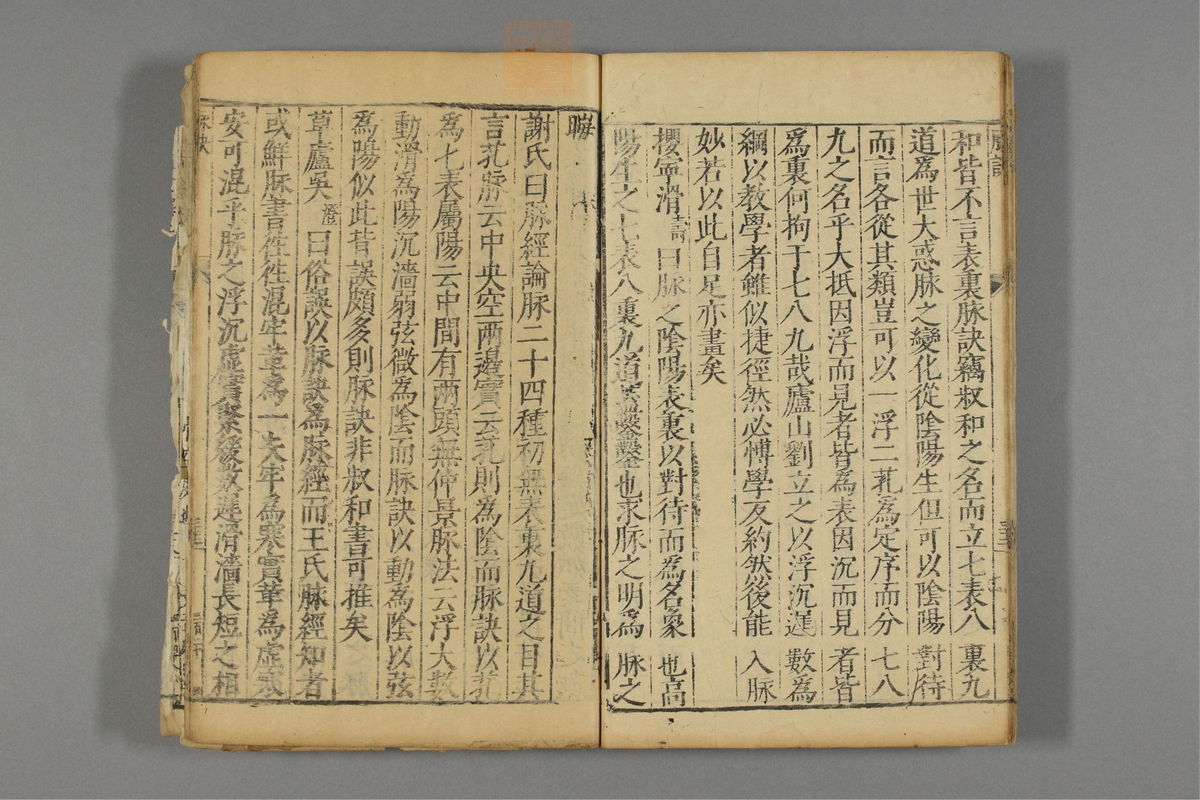 和皆不言表裏脉訣竊叔和之名而立七表八裏九
道為世大惑脉之變化從陰陽生但可以陰陽對待
而言各從其類豈可以一浮二芤為定序而分七八
九之名乎大抵因浮而見者皆為表因沉而見者皆
為裏何拘于七八九哉廬山劉立之以浮沉遲數為
綱以教學者雖似捷徑然必博學反約然後能入脉
妙若以此自足亦畫矣
攖寧滑壽曰脉之陰陽表裏以對待而為名象也高
陽生之七表八裏九道蓋鑿鑿也求脉之明為脉之
晦
謝氏曰脉經論脉二十四種初無表裏九道之目其
言芤脉云中央空兩邊實云芤則為陰而脉訣以芤
為七表屬陽云中間有兩頭無仲景脉法云浮大數
動滑為陽沉濇弱弦微為陰而脉訣以動為陰以弦
為陽似此皆誤頗多則脉訣非叔和書可推矣
草廬吳澄曰俗誤以脉訣為脉經而王氏脉經知者
或鮮脉書往徃混牢革為一夫牢為寒實革為虛寒
安可混乎脉之浮沉虛實緊緩數遲滑濇長短之相
脉訣